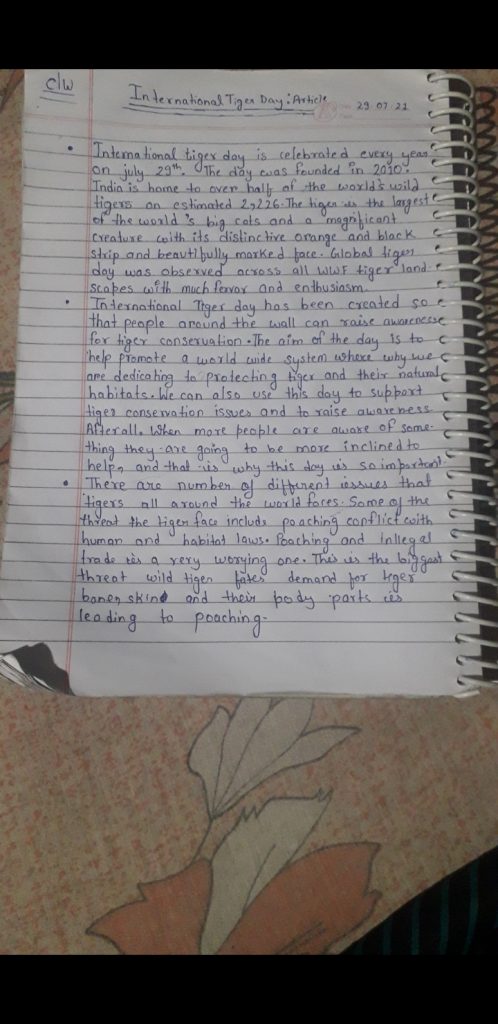 c/w
International Tiger Day: Article
29 07 21
International tiger day is celebrated every year
on july 29th. The day was founded in 2010.
India is home to over half of the world's wild
tigers an estimated 2,226. The tiger is the largest
of the world's big cats and a magnificant
creature with its distinctive orange and black
strip and beautifully marked face. Global tiger
day was observed across all WWF tiger land
scapes with much fervor and enthusiasm.
International Tiger day has been created so
that people around the wall can raise awareness
for tiger conservation. The aim of the day is to
help promote a world wide system where why we
are dedicating to protecting tiger and their natural
habitats. We can also use this day to support
tiger conservation issues and to raise awareness.
Afterall. When more people are aware of some-
thing they are going to be more inclined to
help, and that is why this day is so important.
There are number of different issues that
tigers all around the world faces. Some of the
threat the tiger face includs poaching conflict with
human and habitat laws. Poaching and inllegal
trade is a very worying one. This is the biggest
threat wild tiger fates demand for tiger
bones skin and their body parts is
leading to poaching.